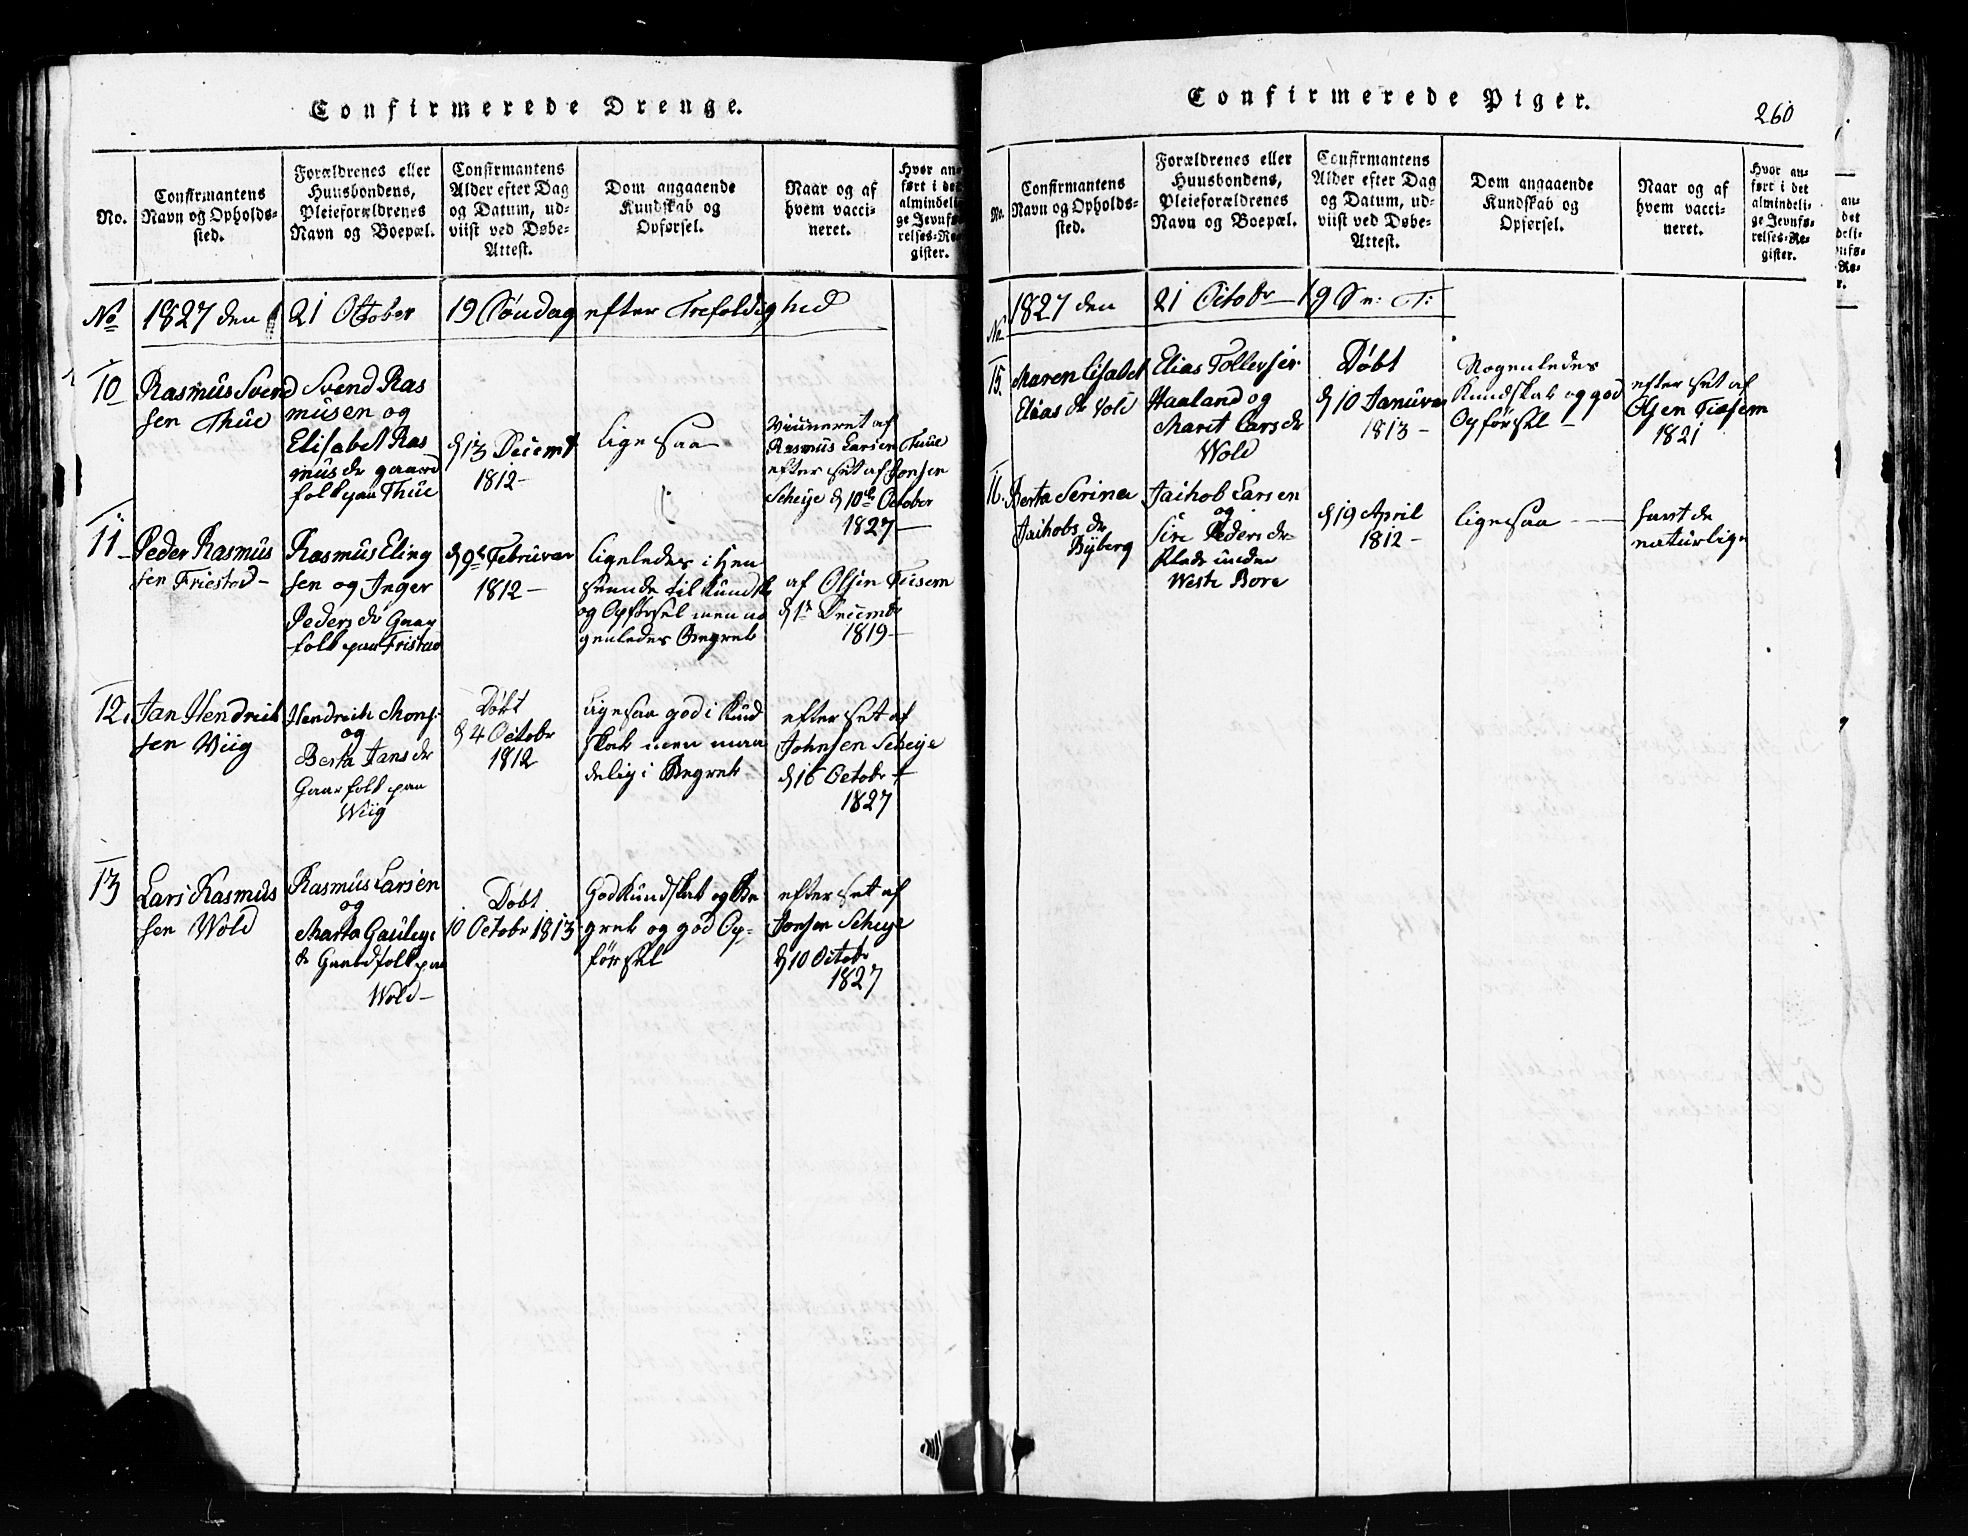 Confirmerede Drenge.
No.
Confirmantens
Navn og Opholds-
sted.
Forældrenes eller
Huusbondens,
Pleieforældrenes
Navn og Boepæl.
Confirmantens
Alder efter Dag
og Datum, ud-
viist ved Døbe-
Attest.
Dom angaaende
Kundskab og
Opførsel.
Naar og af
hvem vacci-
neret.
Hvor an-
ført i det
almindeli-
ge Jevnfø-
relses-Re-
gister.
No 1827 den 21 October 19 Søndag efter Trefoldighed
10
Rasmus Svend
sen Thue
Svend Ras
musen og
Elisabet Ras
mus dr gaard
folk paa Thue
d 13 Decemb
1812-
ligesaa
Rasmus Larsen Tuue
efter set af Jonsen
Scheije d 10de October
1827-
11-
Peder Rasmus
sen Friestad-
Rasmus Eling
sen og Inger
Peders dr Gaar
folk paa Fristad
d 9de Februvar
1812-
ligeledes i Hen
seende til Kundsk
og Opførsel men no
genledes Begreb
af Olsen Tiesem
d 1te Decembr
1819-
12.
Jan Hendrik
sen Wiig
Hendrich Mons
og
Berta Jans dr
Gaarfolk paa
Wiig
Døbt
d 4 Octobr
1812
ligesaa god i Kund
skab men maa
delig i Begreb
efter set af
Johnsen Scheije
d 16 Octobr
1827
13
Lars Rasmus
sen Wold
Rasmus Larsen
og
Marta Gauleys
dr Gaardfolk paa
Wold-
Døbt
10 Octobr 1813
God Kundskab og Be
greb og god Op-
førsel
efter set af
Jonsen Scheije
d 10 Octobr
1827
Confirmerede Piger.
260
No.
Confirmantens
Navn og Opholds-
sted.
Forældrenes eller
Huusbondens,
Pleieforældrenes
Navn og Boepæl.
Confirmantens
Alder efter Dag
og Datum, ud-
viist ved Døbe-
Attest.
Dom angaaende
Kundskab og
Opførsel.
Naar og af
hvem vacci-
neret.
Hvor an-
ført i det
almindeli-
ge Jevnfø-
relses-Re-
gister.
No 1827 den 21 Octobr 19 S e: T:
15.
Maren Lisabet
Elias dr Vold
Elias Tollevsen
Haaland og
Marit Lars dr
Wold
Døbt
d 10 Januvar
1813-
Nogenledes
Kundskab og god
Opførsel-
efter set af
Olsen Tiesem
1821
16.
Berta Serina
Jaikobs dr
Byberg
Jaikob Larsen
og
Siri Peders dr
Plads under
Weste Bore
d 19 April
1812-
ligesaa
havt de
naturlige